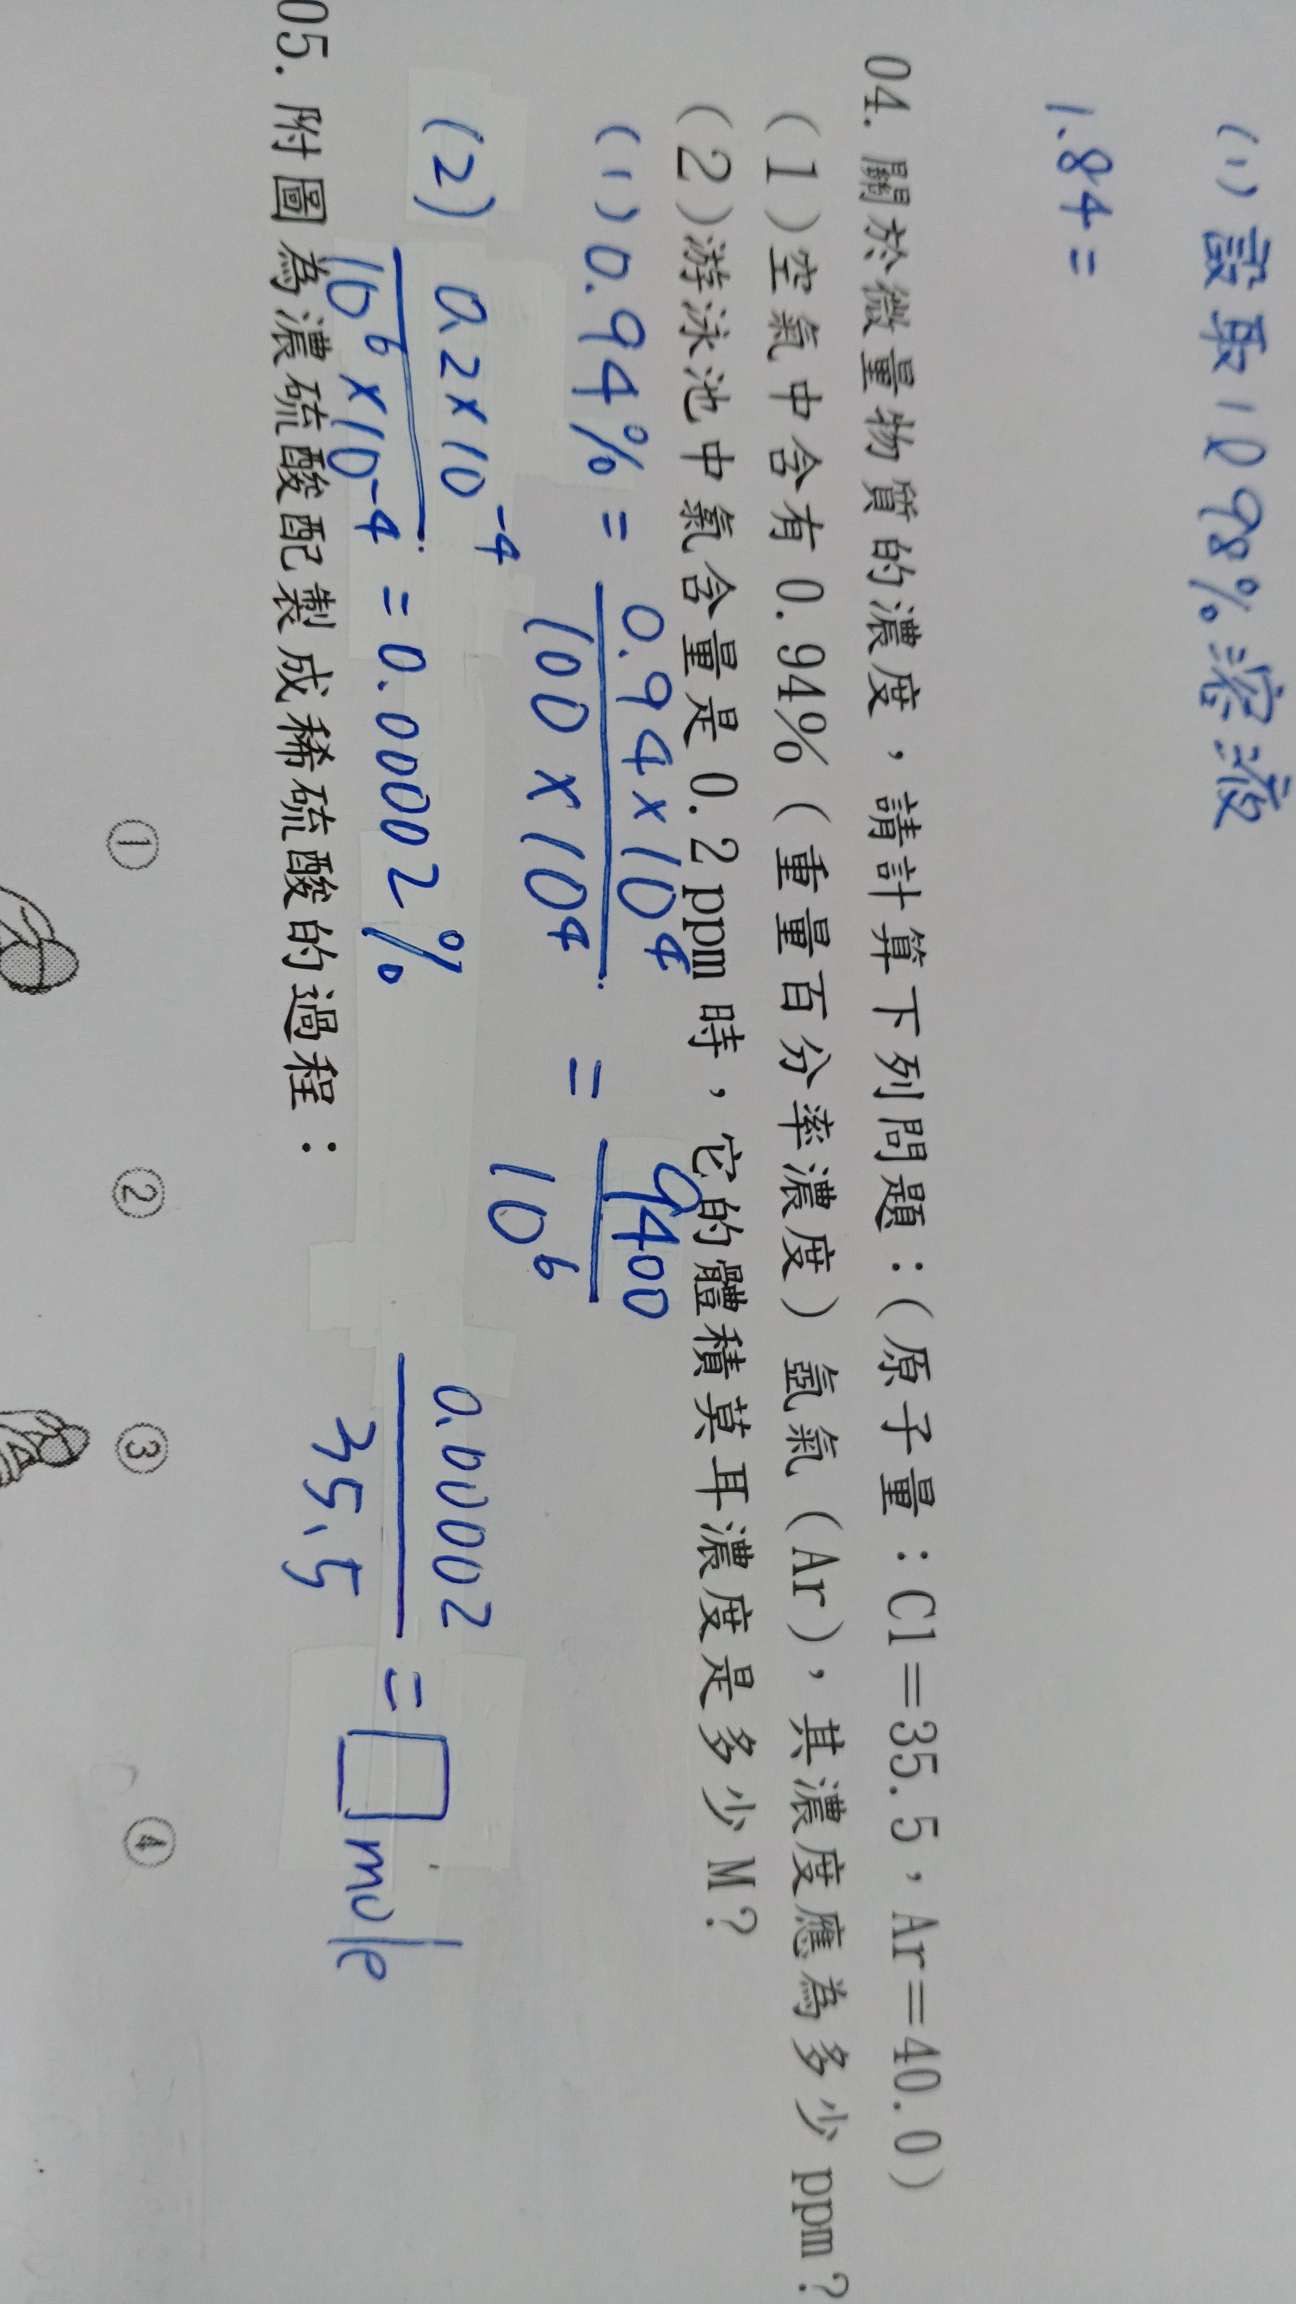 (1) 設取1D 98%溶液
1.84=
04. 關於微量物質的濃度，請計算下列問題：(原子量：Cl＝35.5，Ar＝40.0)
(1)空氣中含有 0.94%（重量百分率濃度）氬氣（Ar），其濃度應為多少 ppm？
(2)游泳池中氯含量是 0.2 ppm 時，它的體積莫耳濃度是多少 M？
(1) 0.94% = 0.94×10⁴ / 100×10⁴ = 9400 / 10⁶
(2) 0.2×10⁻⁴ / 10⁶×10⁻⁴ = 0.00002% 0.00002 / 35.5 = □ mole
05. 附圖為濃硫酸配製成稀硫酸的過程：
① ② ③ ④